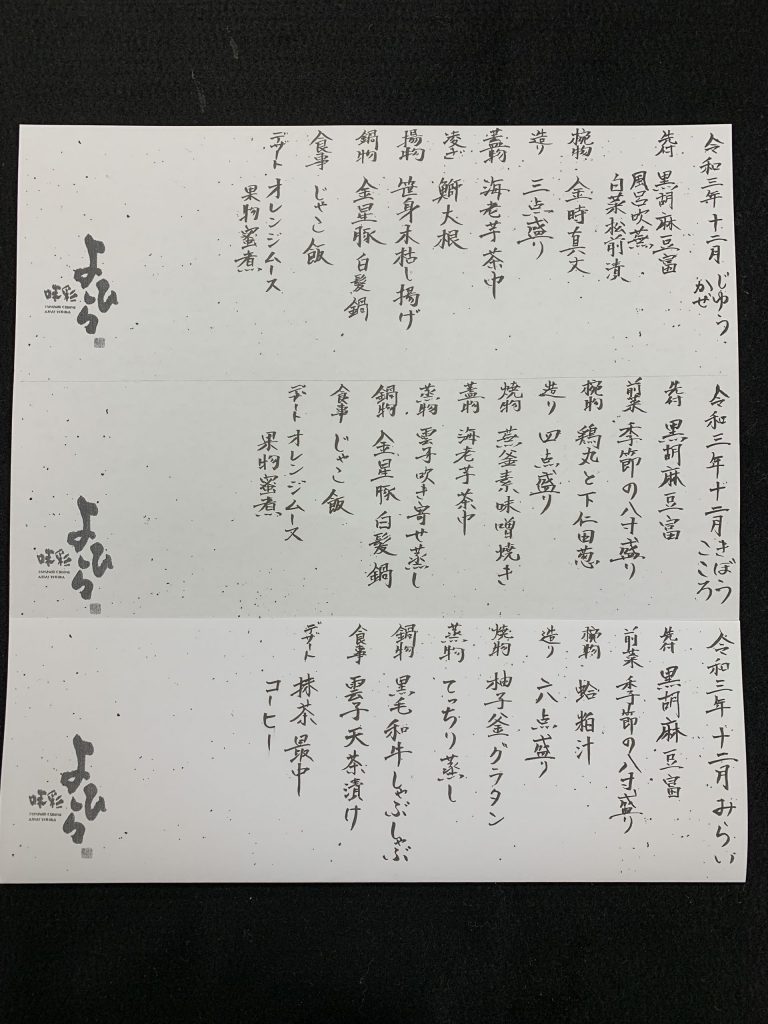 令和三年十二月 じゆう
かぜ
先付 黒胡麻豆富
風呂吹蕪
白菜松前漬
椀物 金時真丈
造り 三点盛り
蓋物 海老芋茶巾
凌ぎ 鰤大根
揚物 笹身木枯し揚げ
鍋物 金星豚白髪鍋
食事 じゃこ飯
デザート オレンジムース
果物蜜煮
よひら
JAPANESE CUISINE
AJISAI YOHIRA
令和三年十二月 きぼう
こころ
先付 黒胡麻豆富
前菜 季節の八寸盛り
椀物 鶏丸と下仁田葱
造り 四点盛り
焼物 蕪釜素味噌焼き
蓋物 海老芋茶巾
蒸物 雲子吹き寄せ蒸し
鍋物 金星豚白髪鍋
食事 じゃこ飯
デザート オレンジムース
果物蜜煮
よひら
JAPANESE CUISINE
AJISAI YOHIRA
令和三年十二月 みらい
先付 黒胡麻豆富
前菜 季節の八寸盛り
椀物 蛤粕汁
造り 六点盛り
焼物 柚子釜グラタン
蒸物 てっちり蒸し
鍋物 黒毛和牛しゃぶしゃぶ
食事 雲子天茶漬け
デザート 抹茶最中
コーヒー
よひら
JAPANESE CUISINE
AJISAI YOHIRA